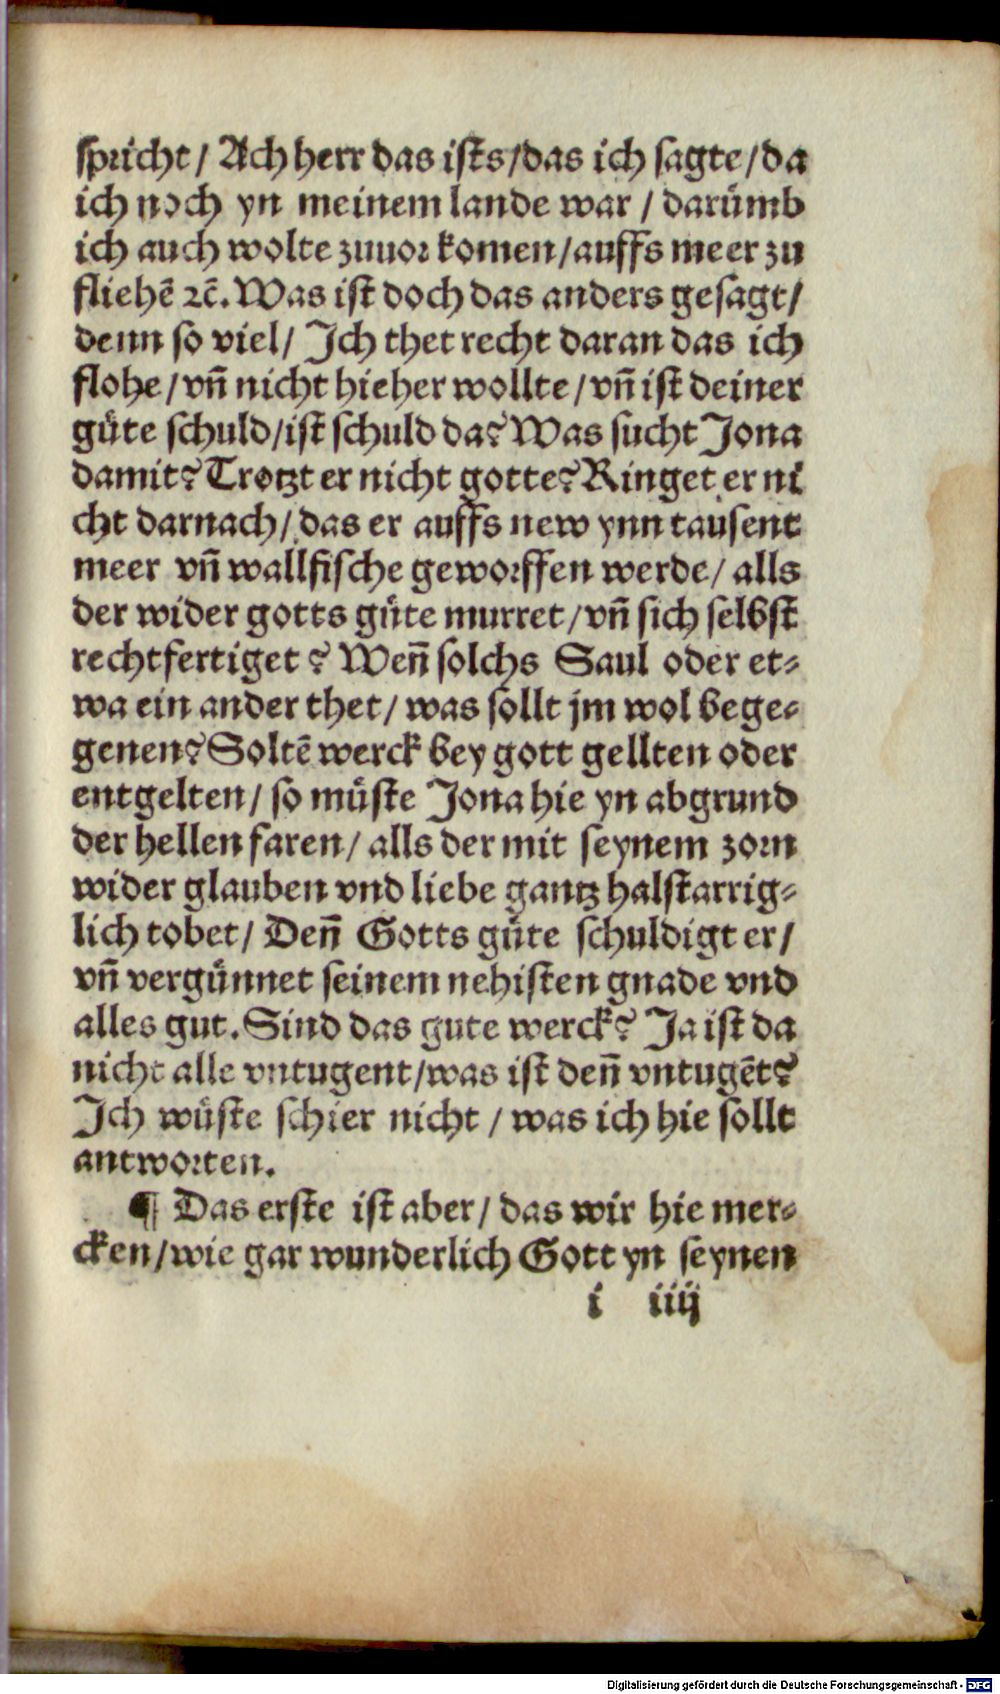 spricht / Ach herr das ists / das ich sagte / da
ich noch yn meinem lande war / darümb
ich auch wolte zuuor komen / auffs meer zu
fliehē ꝛc̄. Was ist doch das anders gesagt /
denn so viel / Ich thet recht daran das ich
flohe / vn̄ nicht hieher wollte / vn̄ ist deiner
güte schuld / ist schuld da? Was sucht Jona
damit? Trotzt er nicht gotte? Ringet er ni
cht darnach / das er auffs new ynn tausent
meer vn̄ wallfische geworffen werde / alls
der wider gotts güte murret / vn̄ sich selbst
rechtfertiget ? Wen̄ solchs Saul oder et⸗
wa ein ander thet / was sollt jm wol bege⸗
genen? Soltē werck bey gott gellten oder
entgelten / so müste Jona hie yn abgrund
der hellen faren / alls der mit seynem zorn
wider glauben vnd liebe gantz halstarrig⸗
lich tobet / Den̄ Gotts güte schuldigt er /
vn̄ vergünnet seinem nehisten gnade vnd
alles gut. Sind das gute werck? Ja ist da
nicht alle vntugent / was ist den̄ vntugēt?
Ich wüste schier nicht / was ich hie sollt
antworten.
¶ Das erste ist aber / das wir hie mer⸗
cken / wie gar wunderlich Gott yn seynen
i iiij
Digitalisierung gefördert durch die Deutsche Forschungsgemeinschaft - DFG